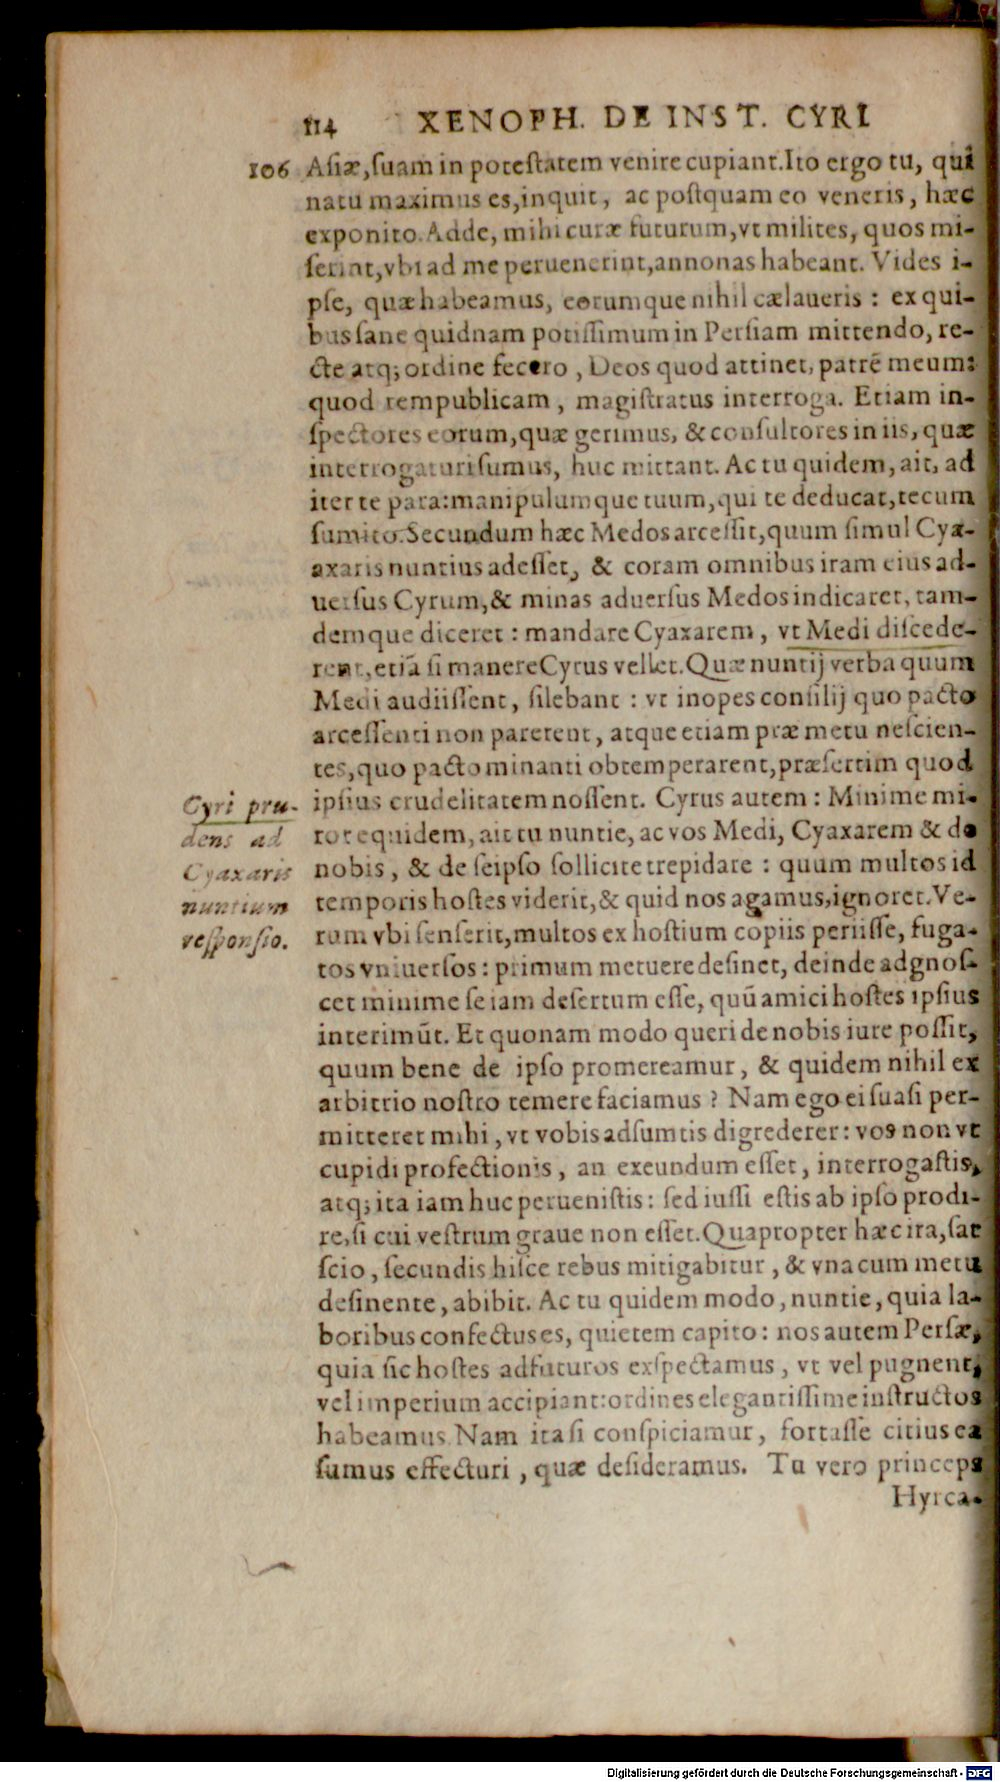 114 XENOPH. DE INST. CYRI
106 Asiæ, suam in potestatem venire cupiant. Ito ergo tu, qui
natu maximus es, inquit, ac postquam eo veneris, hæc
exponito. Adde, mihi curæ futurum, vt milites, quos mi-
serint, vbi ad me peruenerint, annonas habeant. Vides i-
pse, quæ habeamus, eorumque nihil cælaueris: ex qui-
bus sane quidnam potissimum in Persiam mittendo, re-
cte atq; ordine fecero, Deos quod attinet, patrē meum:
quod rempublicam, magistratus interroga. Etiam in-
spectores eorum, quæ gerimus, & consultores in iis, quæ
interrogaturi sumus, huc mittant. Ac tu quidem, ait, ad
iter te para: manipulumque tuum, qui te deducat, tecum
sumito. Secundum hæc Medos arcessit, quum simul Cya-
axaris nuntius adesset, & coram omnibus iram eius ad-
uersus Cyrum, & minas aduersus Medos indicaret, tam-
demque diceret: mandare Cyaxarem, vt Medi discede-
rent, etiā si manere Cyrus vellet. Quæ nuntij verba quum
Medi audiissent, silebant: vt inopes consilij quo pacto
arcessenti non parerent, atque etiam præ metu nescien-
tes, quo pacto minanti obtemperarent, præsertim quod
ipsius crudelitatem nossent. Cyrus autem: Minime mi-
ror equidem, ait tu nuntie, ac vos Medi, Cyaxarem & de
nobis, & de seipso sollicite trepidare: quum multos id
temporis hostes viderit, & quid nos agamus, ignoret. Ve-
rum vbi senserit, multos ex hostium copiis periisse, fuga-
tos vniuersos: primum metuere desinet, deinde adgnos-
cet minime se iam desertum esse, quū amici hostes ipsius
interimūt. Et quonam modo queri de nobis iure possit,
quum bene de ipso promereamur, & quidem nihil ex
arbitrio nostro temere faciamus? Nam ego ei suasi per-
mitteret mihi, vt vobis adsumtis digrederer: vos non vt
cupidi profectionis, an exeundum esset, interrogastis,
atq; ita iam huc peruenistis: sed iussi estis ab ipso prodi-
re, si cui vestrum graue non esset. Quapropter hæc ira, sat
scio, secundis hisce rebus mitigabitur, & vna cum metu
desinente, abibit. Ac tu quidem modo, nuntie, quia la-
boribus confectus es, quietem capito: nos autem Persæ,
quia sic hostes adfuturos exspectamus, vt vel pugnent,
vel imperium accipiant: ordines elegantissime instructos
habeamus. Nam ita si conspiciamur, fortasse citius ea
sumus effecturi, quæ desideramus. Tu vero princeps
Hyrca-
Cyri pru-
dens ad
Cyaxaris
nuntium
responsio.
Digitalisierung gefördert durch die Deutsche Forschungsgemeinschaft - DFG